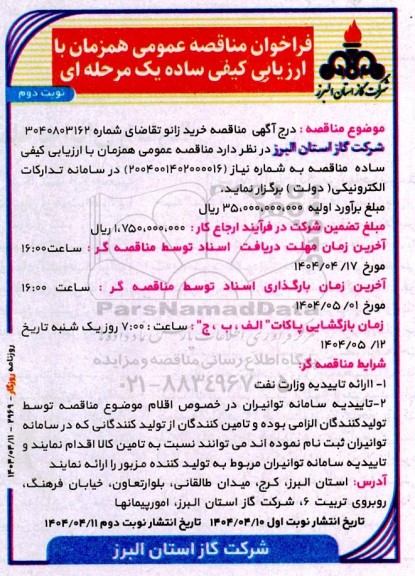 فراخوان مناقصه عمومی همزمان با
ارزیابی کیفی ساده یک مرحله ای
نوبت دوم
شرکت گاز استان البرز
موضوع مناقصه : درج آگهی مناقصه خرید زانو تقاضای شماره ۳۰۴۰۸۰۳۱۶۲
شرکت گاز استان البرز در نظر دارد مناقصه عمومی همزمان با ارزیابی کیفی
ساده مناقصه به شماره نیاز (۲۰۰۴۰۰۱۴۰۲۰۰۰۰۱۶) در سامانه تدارکات
الکترونیکی( دولت ) برگزار نماید.
مبلغ برآورد اولیه ۳۵,۰۰۰,۰۰۰,۰۰۰ ریال
مبلغ تضمین شرکت در فرآیند ارجاع کار : ۱,۷۵۰,۰۰۰,۰۰۰ ریال
آخرین زمان مهلت دریافت اسناد توسط مناقصه گر : ساعت ۱۶:۰۰
مورخ ۱۷/ ۱۴۰۴/۰۴
آخرین زمان بارگذاری اسناد توسط مناقصه گر : ساعت ۱۶:۰۰
مورخ ۰۱/ ۱۴۰۴/۰۵
زمان بازگشایی پاکات" الف ، ب ، ج" : ساعت : ۷:۰۰ روز یک شنبه تاریخ
۱۲/ ۱۴۰۴/۰۵
شرایط مناقصه گر:
۱- ارائه تاییدیه وزارت نفت
۲-تاییدیه سامانه توانیران در خصوص اقلام موضوع مناقصه توسط
تولیدکنندگان الزامی بوده و تامین کنندگان از تولید کنندگانی که در سامانه
توانیران ثبت نام نموده اند می توانند نسبت به تامین کالا اقدام نمایند و
تاییدیه سامانه توانیران مربوط به تولید کننده مزبور را ارائه نمایند
آدرس: استان البرز، کرج، میدان طالقانی، بلوارتعاون، خیابان فرهنگ،
روبروی تربیت ۶، شرکت گاز استان البرز، امورپیمانها
تاریخ انتشار نوبت اول ۱۴۰۴/۰۴/۱۰ تاریخ انتشار نوبت دوم ۱۴۰۴/۰۴/۱۱
شرکت گاز استان البرز
روزنامه روزگار - ۲۹۶۹ - ۱۴۰۴/۰۴/۱۱
ParsNamadData
پایگاه اطلاع رسانی مناقصه و مزایده